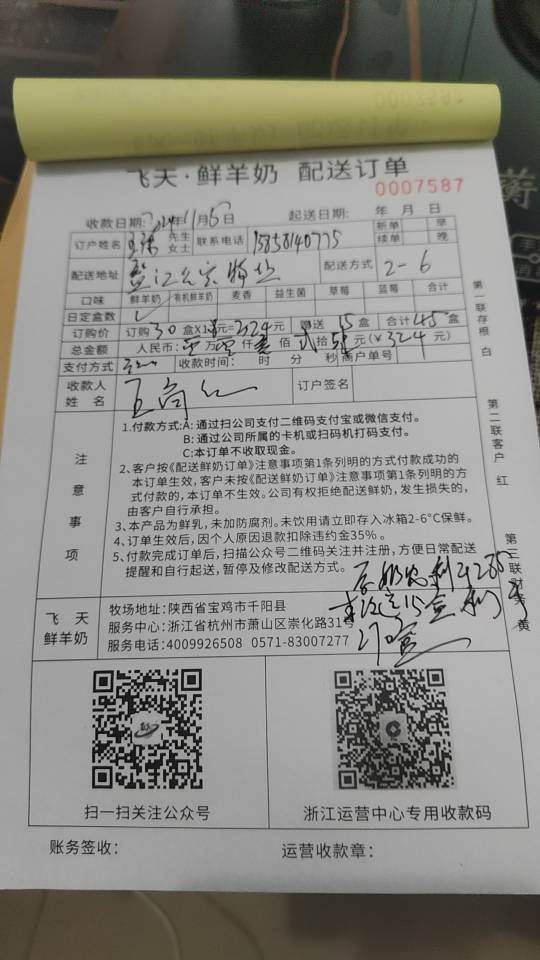 飞天·鲜羊奶 配送订单
0007587
收款日期: 年11月6日 起送日期: 年 月 日
订户姓名 先生 女士 联系电话 15858140775 新单 续单 早 晚
配送地址 配送方式 2-6
口味 鲜羊奶 有机鲜羊奶 麦香 益生菌 草莓 蓝莓 合计
日定盒数
订购价 订购30盒X =324元 赠送15盒 合计45盒
总金额 人民币: 万 仟 佰 拾 元(¥324元)
支付方式 收款时间: 时 分 秒 商户单号
收款人姓名 订户签名
注意事项
1.付款方式:A: 通过扫公司支付二维码支付宝或微信支付。
B: 通过公司所属的卡机或扫码机打码支付。
C:本订单不收取现金。
2、客户按《配送鲜奶订单》注意事项第1条列明的方式付款成功的
本订单生效，客户未按《配送鲜奶订单》注意事项第1条列明的方
式付款的，本订单不生效。公司有权拒绝配送鲜奶，发生损失的，
由客户自行承担。
3、本产品为鲜乳，未加防腐剂。未饮用请立即存入冰箱2-6°C保鲜。
4、订单生效后，因个人原因退款扣除违约金35%。
5、付款完成订单后，扫描公众号二维码关注并注册，方便日常配送
提醒和自行起送，暂停及修改配送方式。
第一联存根 白
第二联客户 红
第三联财务 黄
飞天鲜羊奶
牧场地址:陕西省宝鸡市千阳县
服务中心:浙江省杭州市萧山区崇化路31号
服务电话:4009926508 0571-83007277
扫一扫关注公众号
浙江运营中心专用收款码
账务签收:
运营收款章: